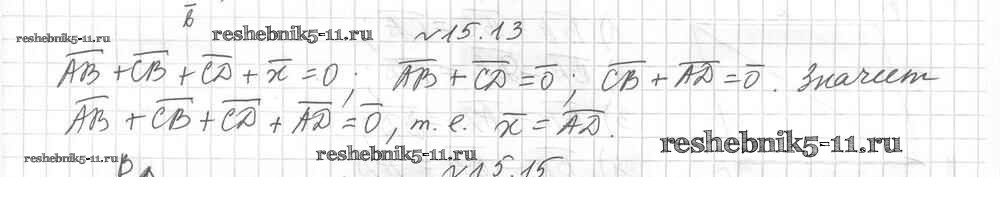 b̅
reshebnik5-11.ru reshebnik5-11.ru №15.13
A̅B̅ + C̅B̅ + C̅D̅ + x̅ = 0; A̅B̅ + C̅D̅ = 0̅; C̅B̅ + A̅D̅ = 0̅. Значит
A̅B̅ + C̅B̅ + C̅D̅ + A̅D̅ = 0̅, т. е. x̅ = A̅D̅.
reshebnik5-11.ru
reshebnik5-11.ru B reshebnik5-11.ru №15.15